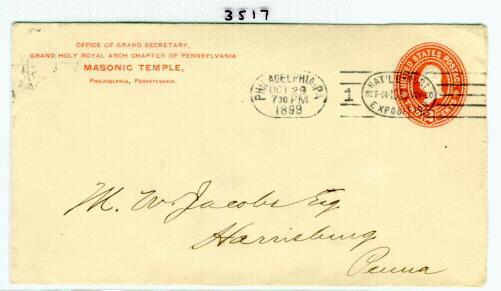 3517
OFFICE OF GRAND SECRETARY,
GRAND HOLY ROYAL ARCH CHAPTER OF PENNSYLVANIA
MASONIC TEMPLE,
PHILADELPHIA, PENNSYLVANIA.
PHILADELPHIA, PA
OCT 29
730 PM
1899
1
NAT'L EXPORT
EXPOSITION
UNITED STATES POSTAGE
M. W. Jacobs Esq
Harrisburg
Penna